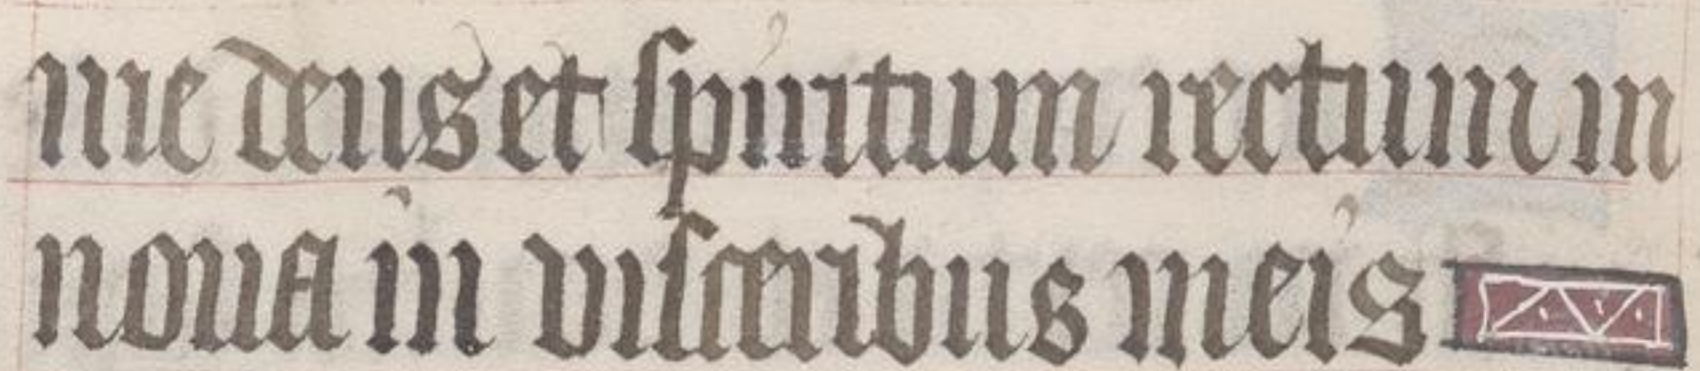 me deus et spiritum rectum in
noua in visceribus meis